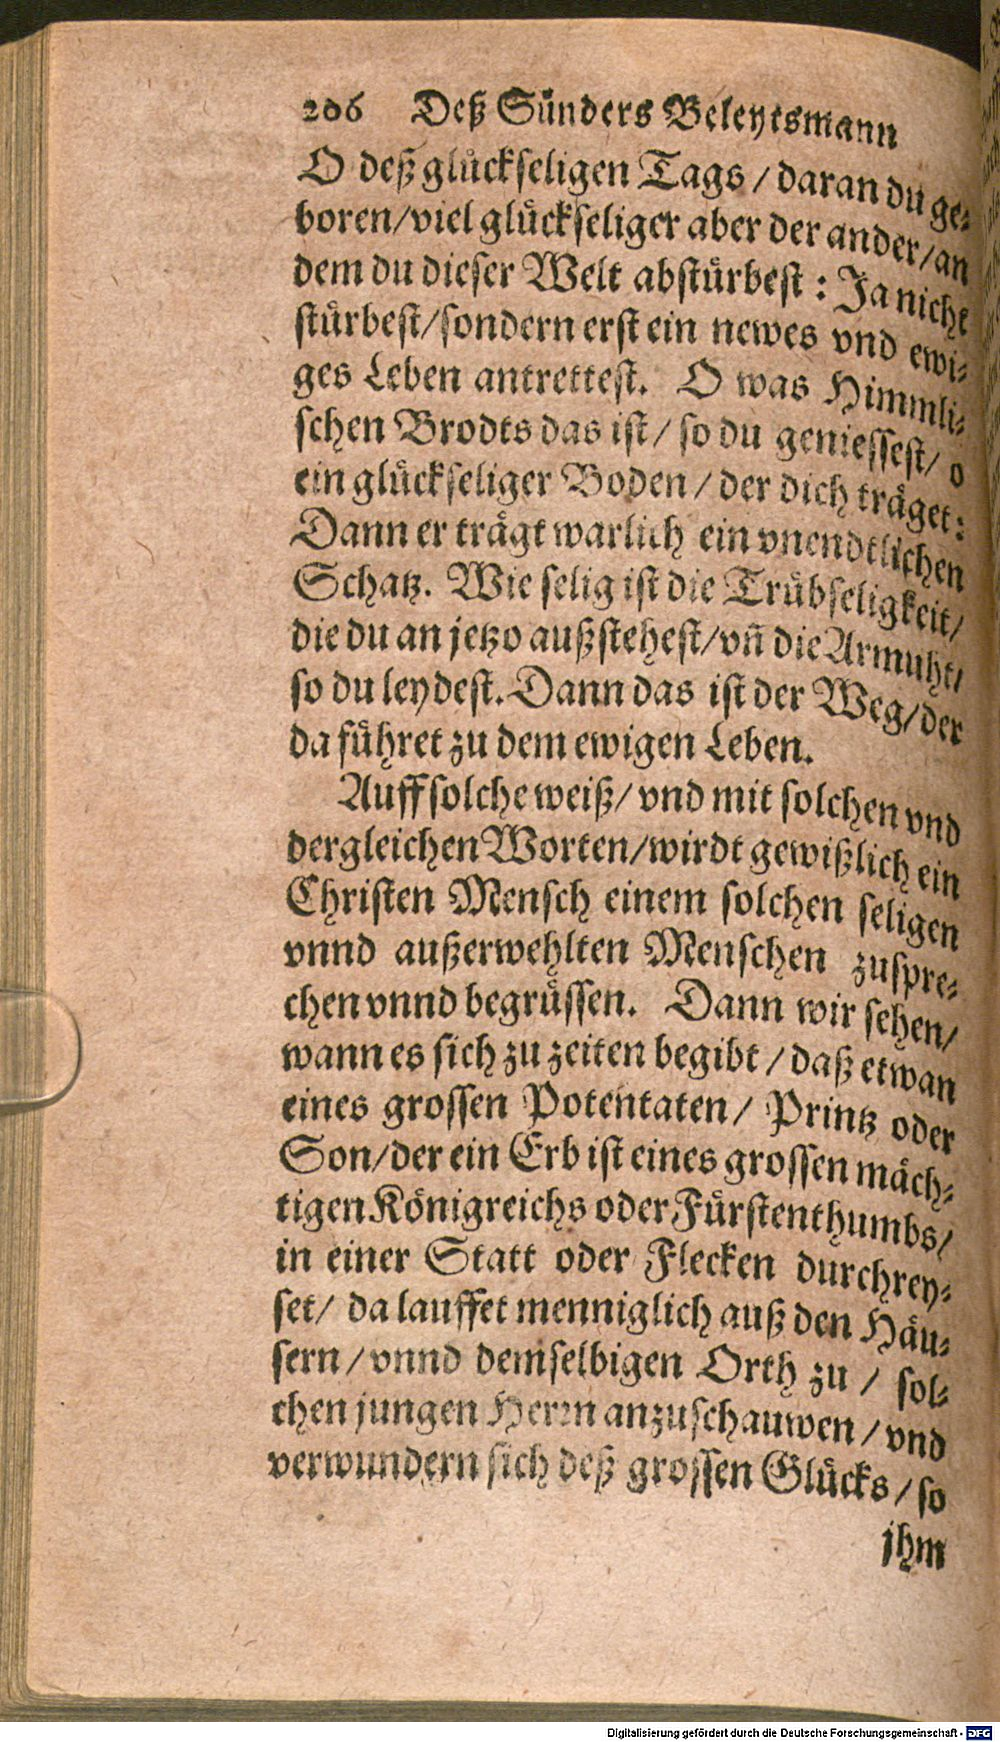 206 Deß Sünders Beleytsmann
O deß glückseligen Tags / daran du ge-
boren/viel glückseliger aber der ander/an
dem du dieser Welt abstürbest : Ja nicht
stürbest/sondern erst ein newes vnd ewi-
ges Leben antrettest. O was Himmli-
schen Brodts das ist / so du geniessest/ o
ein glückseliger Boden / der dich träget:
Dann er trägt warlich ein vnendtlichen
Schatz. Wie selig ist die Trübseligkeit/
die du an jetzo außstehest/vñ die Armuht/
so du leydest. Dann das ist der Weg/der
da führet zu dem ewigen Leben.
Auff solche weiß/ vnd mit solchen vnd
dergleichen Worten/wirdt gewißlich ein
Christen Mensch einem solchen seligen
vnnd außerwehlten Menschen zuspre-
chen vnnd begrüssen. Dann wir sehen/
wann es sich zu zeiten begibt / daß etwan
eines grossen Potentaten/ Printz oder
Son/der ein Erb ist eines grossen mäch-
tigen Königreichs oder Fürstenthumbs/
in einer Statt oder Flecken durchrey-
set/ da lauffet menniglich auß den Häu-
sern / vnnd demselbigen Orth zu / sol-
chen jungen Herrn anzuschauwen / vnd
verwundern sich deß grossen Glücks / so
ihm
Digitalisierung gefördert durch die Deutsche Forschungsgemeinschaft - DFG